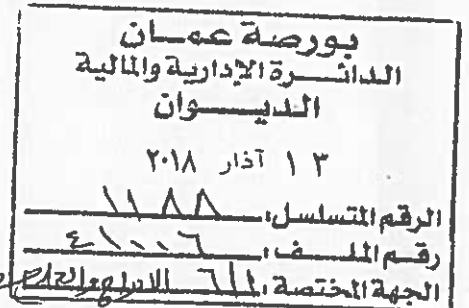 بورصة عمان
الدائرة الإدارية والمالية
الديوان
١٣ آذار ٢٠١٨
الرقم المتسلسل: ١١٨٨
رقم الملف: ٤١٠٠٦
الجهة المختصة: